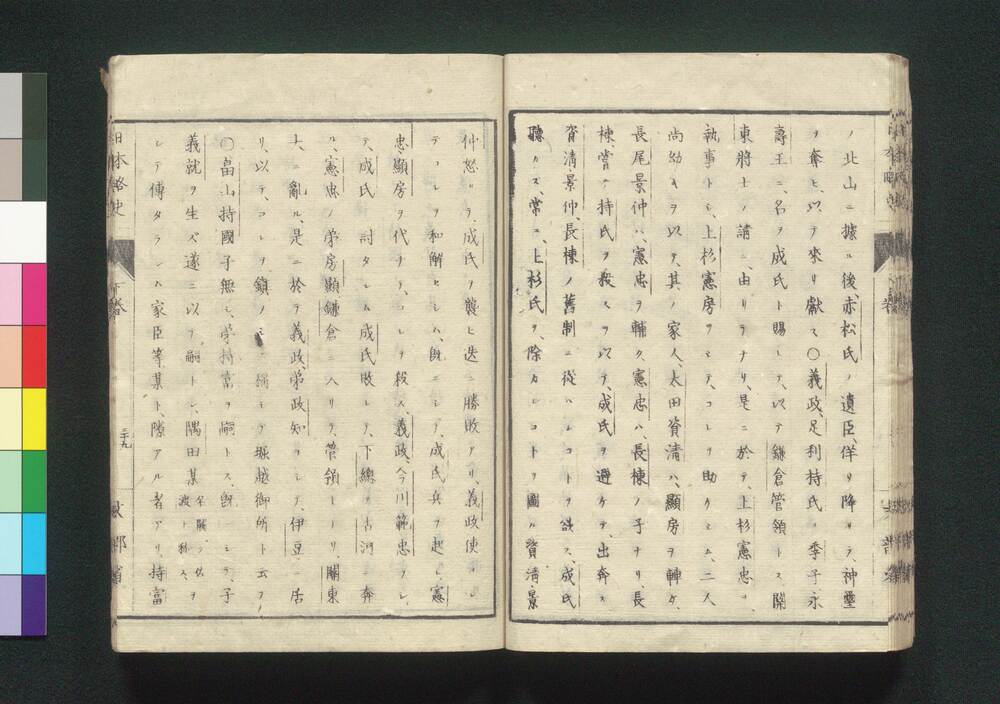 ノ北山ニ據ル後、赤松氏ノ遺臣、佯リ降リテ、神璽
ヲ奪ヒ、以テ來リ獻ス〇義政、足利持氏ノ季子永
壽王ニ、名ヲ成氏ト賜ヒテ、以テ鎌倉管領トス、關
東將士ノ請ニ、由リテナリ、是ニ於テ、上杉憲忠
執事トシ、上杉憲房ヲシテ、コレヲ助ケシム、二人
尚幼キヲ以テ、其ノ家人、太田資清ハ、顯房ヲ輔ケ、
長尾景仲ハ、憲忠ヲ輔ク、憲忠ハ、長棟ノ子ナリ、長
棟嘗テ持氏ヲ殺スヲ以テ、成氏ヲ避ケテ、出奔ス
資清、景仲、長棟ノ舊制ニ從ハムコトヲ請ス、成氏
聽カス、常ニ上杉氏ヲ、除カムコトヲ圖ル、資清、景
仲怒リテ、成氏ヲ襲ヒ迭ニ勝敗アリ、義政、使ヲシ
テコレヲ和解セシム、既ニシテ、成氏兵ヲ起シ、憲
忠、顯房ヲ代チテ、コレヲ殺ス、義政、今川範忠ヲシ
テ、成氏 討タシム成氏敗レテ、下總ノ古河ニ奔
ル、憲忠ノ弟房顯鎌倉ニ入リテ、管領トナリ、關東
大ニ亂ル、是ニ於テ義政、弟政知ヲシテ、伊豆ニ居
リ、以テ、コレヲ鎮 稱シテ堀越御所ト云フ
〇畠山持國子無シ、弟持富ヲ嗣トス、既ニシテ、子
義就ヲ生ム遂ニ以テ嗣トシ、隅田某 ヲ
シテ傅タラシム家臣等某ト、隙アル者アリ、持富
日本略史
卷
三十九
文部省